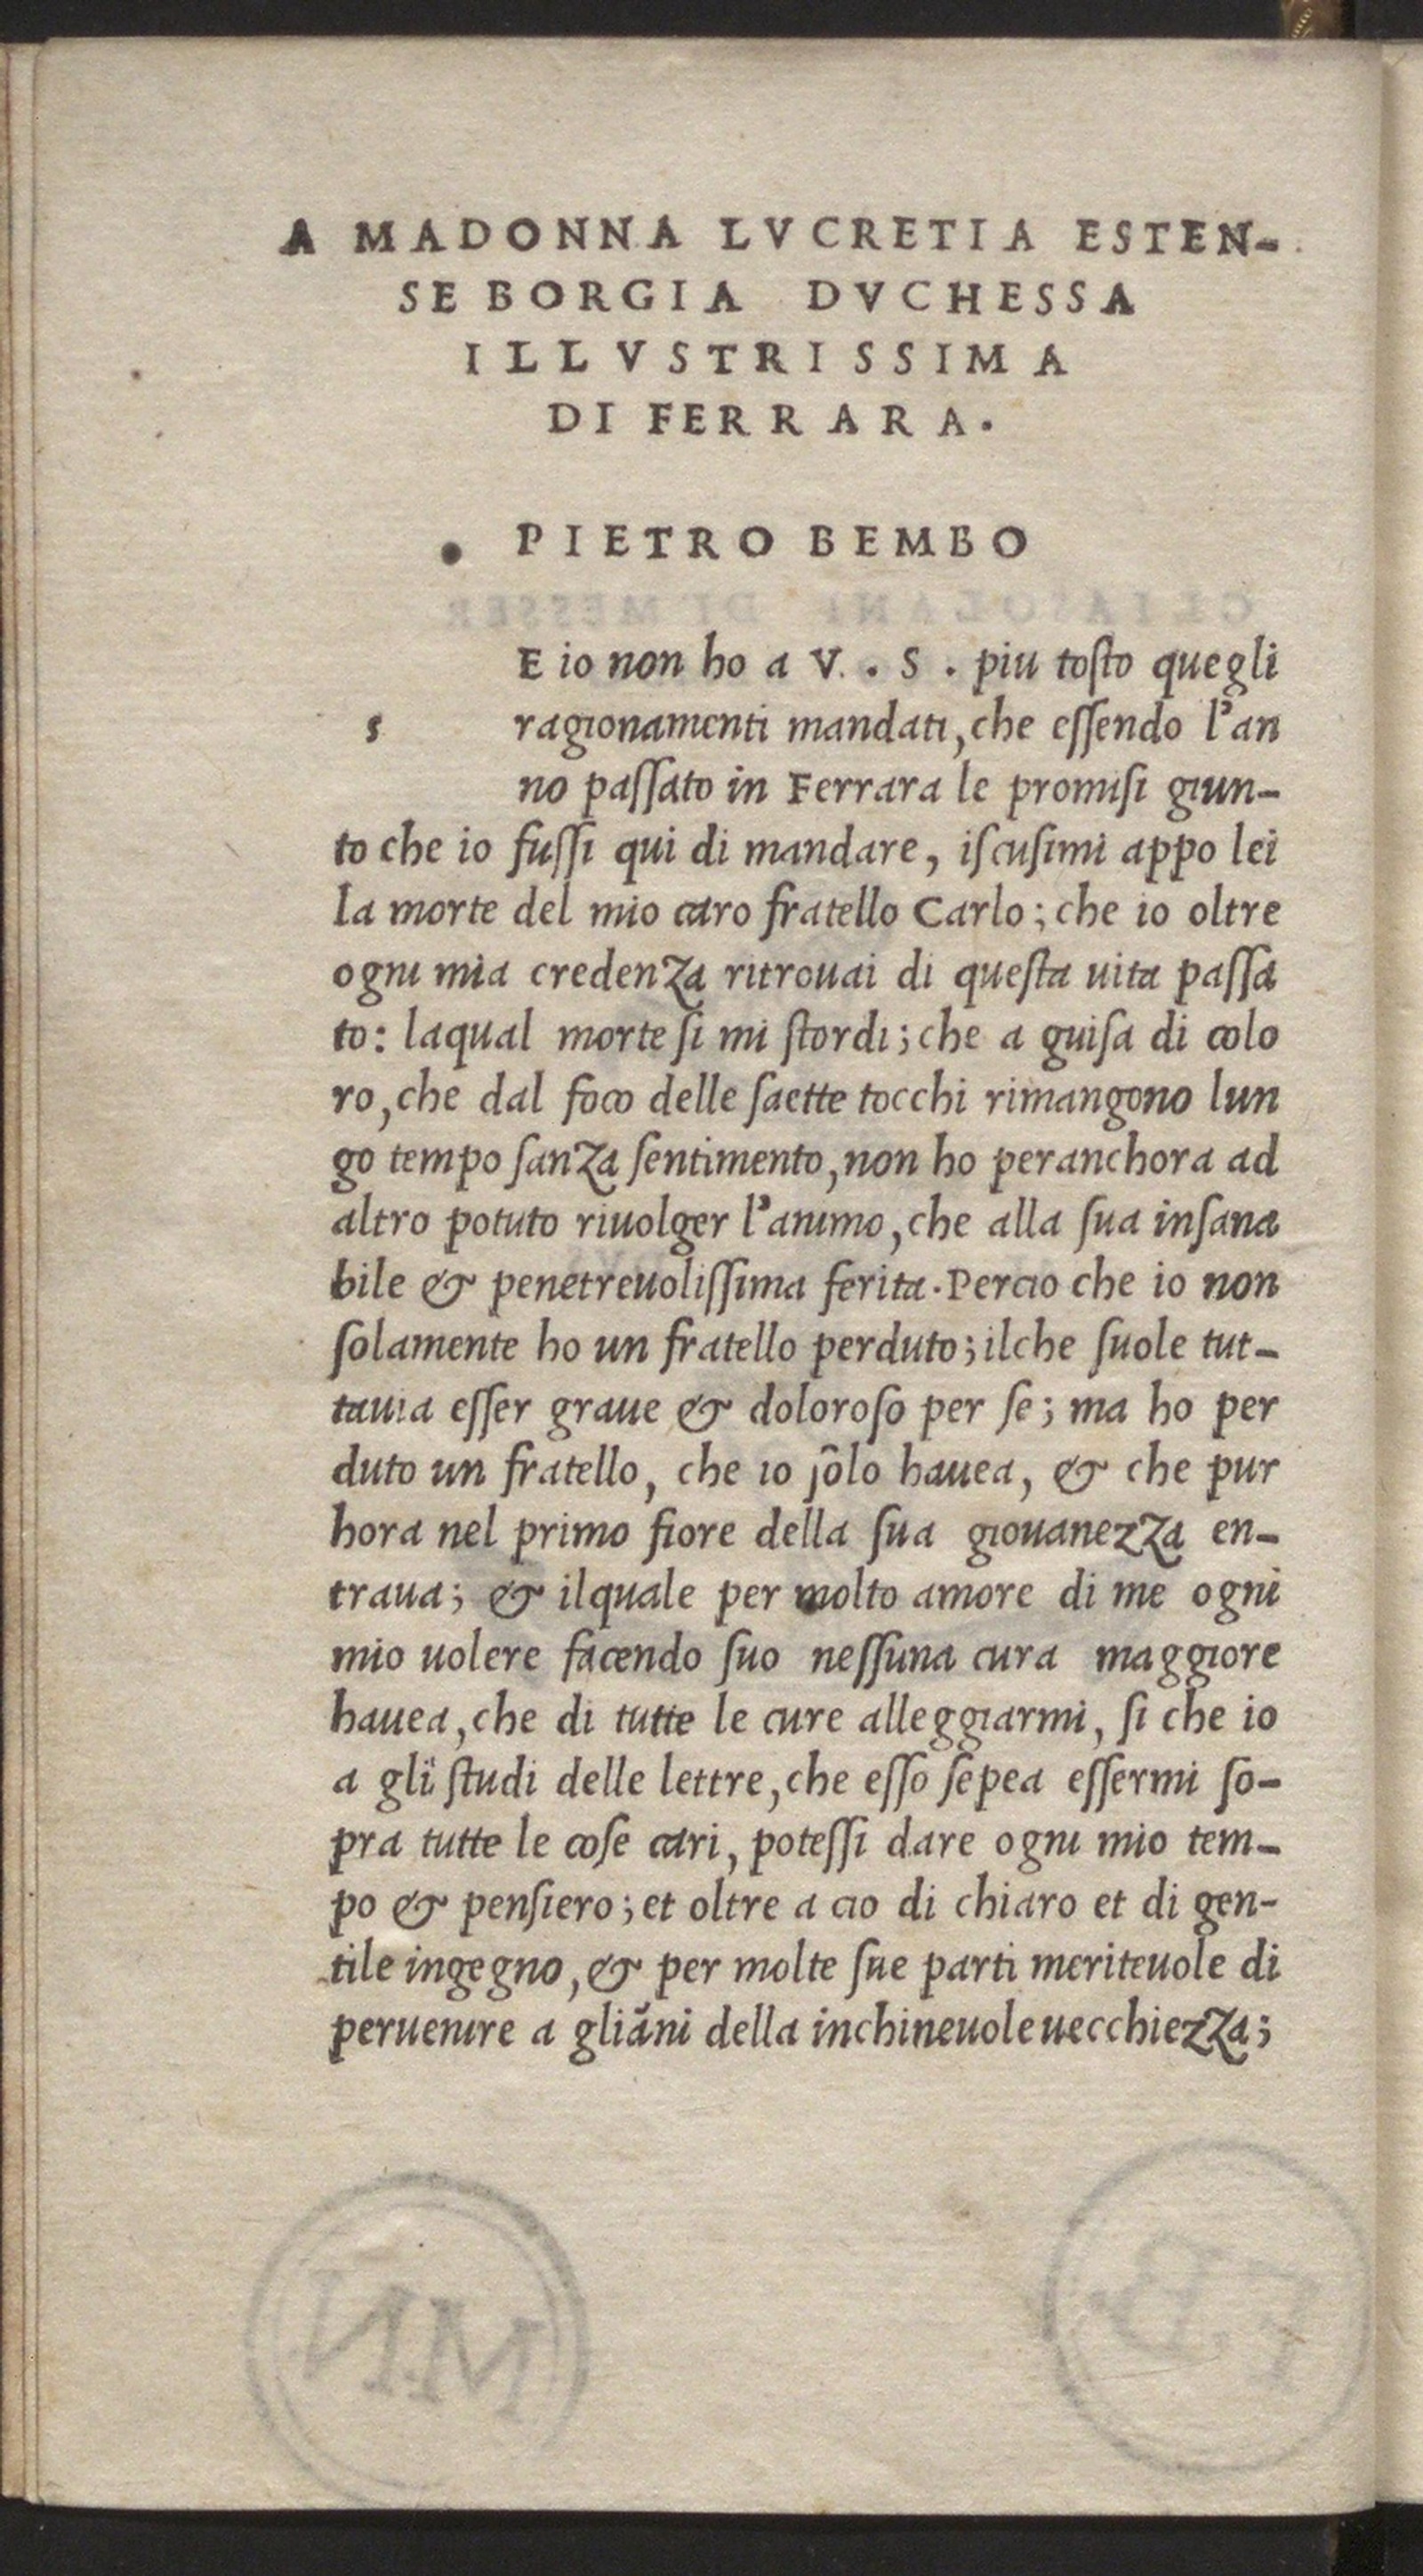 A MADONNA LVCRETIA ESTEN-
SE BORGIA DVCHESSA
ILLVSTRISSIMA
DI FERRARA.
PIETRO BEMBO
E io non ho a V. . S . piu toſto quegli
s ragionamenti mandati, che eſſendo l'an
no paſſato in Ferrara le promiſi giun-
to che io fuſſi qui di mandare, iſcuſimi appo lei
la morte del mio caro fratello Carlo; che io oltre
ogni mia credenza ritrouai di queſta uita paſſa
to: laqual morte ſi mi ſtordi; che a guiſa di colo
ro, che dal foco delle ſaette tocchi rimangono lun
go tempo ſanza ſentimento, non ho peranchora ad
altro potuto riuolger l'animo, che alla ſua inſana
bile & penetreuoliſſima ferita. Percio che io non
ſolamente ho un fratello perduto; ilche ſuole tut-
tauia eſſer graue & doloroſo per ſe; ma ho per
duto un fratello, che io ſôlo hauea, & che pur
hora nel primo fiore della ſua giouanezza en-
traua; & ilquale per molto amore di me ogni
mio uolere facendo ſuo neſſuna cura maggiore
hauea, che di tutte le cure alleggiarmi, ſi che io
a glï ſtudi delle lettre, che eſſo ſepea eſſermi ſo-
pra tutte le coſe cari, poteſſi dare ogni mio tem-
po & penſiero; et oltre a cio di chiaro et di gen-
tile ingegno, & per molte ſue parti meriteuole di
peruenire a gliãni della inchineuole uecchiezza;
MN